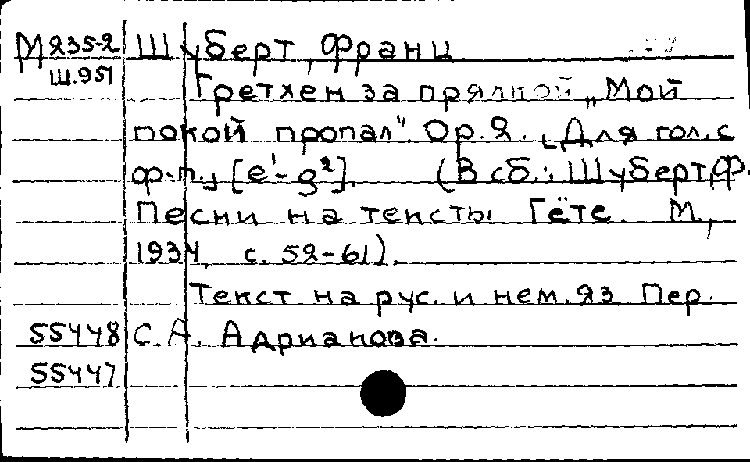 М235-2 Шуберт, Франц
Ш.951 Гретхен за прялкой „Мой
покой пропал" Ор.2. [Для гол. с
ф-п.] [e¹-g²]. (В сб.: Шуберт, Ф.
Песни на тексты Гёте. М.,
1934, с. 52-61).
Текст на рус. и нем. яз. Пер.
55448 С.А. Адрианова.
55447